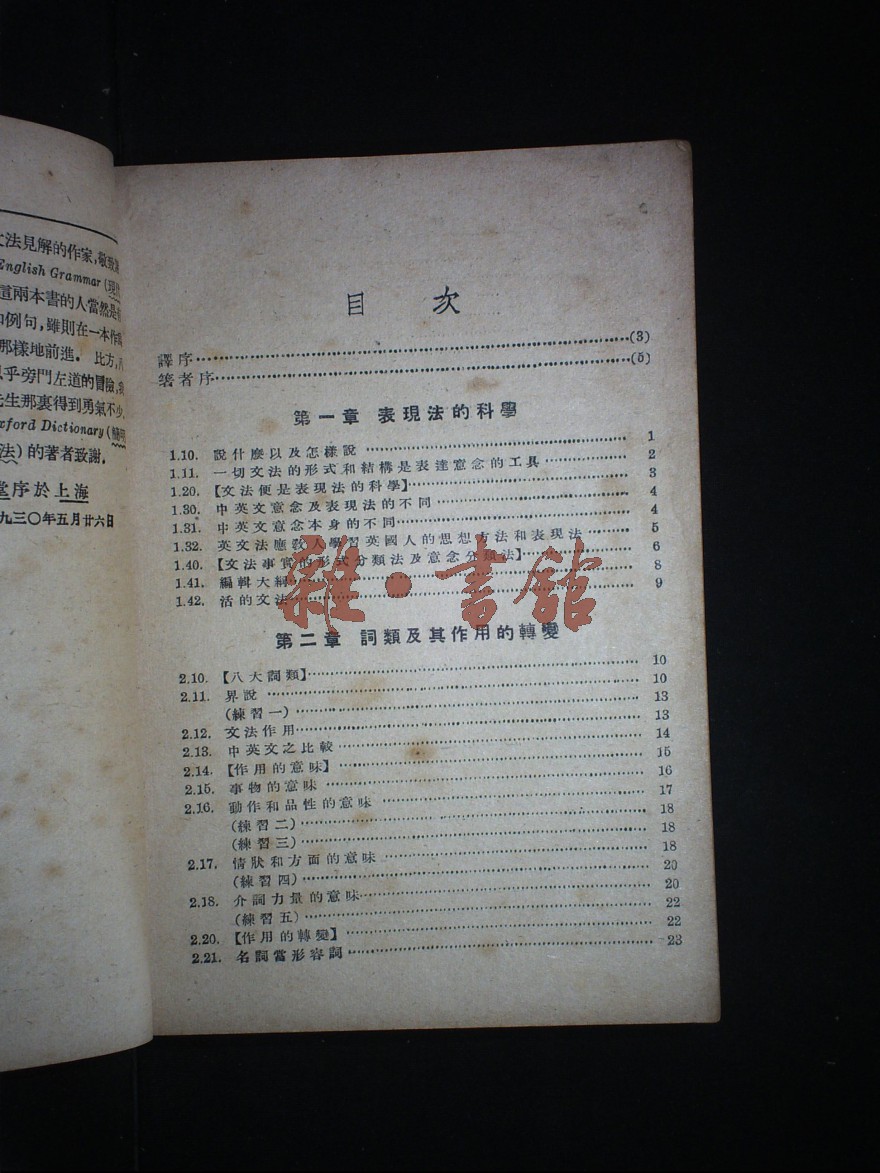 文法見解的作家,敬致謝
English Grammar (現代
這兩本書的人當然是
和例句,雖則在一本作
那樣地前進. 比方,
乎旁門左道的冒險,
先生那裏得到勇氣不少,
Oxford Dictionary (簡明
法) 的著者致謝.
堂序於上海
九三〇年五月廿六日
目 次
譯序 (3)
箸者序 (5)
第一章 表現法的科學
1.10. 說什麽以及怎樣說 1
1.11. 一切文法的形式和結構是表達意念的工具 2
1.20. 【文法便是表現法的科學】 3
1.30. 中英文意念及表現法的不同 4
1.31. 中英文意念本身的不同 4
1.32. 英文法應敎人學習英國人的思想方法和表現法 5
1.40. 【文法事實的形式分類法及意念分類法】 6
1.41. 編輯大綱 8
1.42. 活的文法 9
雜·書館
第二章 詞類及其作用的轉變
2.10. 【八大詞類】 10
2.11. 界說 10
(練習一) 13
2.12. 文法作用 13
2.13. 中英文之比較 14
2.14. 【作用的意味】 15
2.15. 事物的意味 16
2.16. 動作和品性的意味 17
(練習二) 18
(練習三) 18
2.17. 情狀和方面的意味 18
(練習四) 20
2.18. 介詞力量的意味 20
(練習五) 22
2.20. 【作用的轉變】 22
2.21. 名詞當形容詞 23